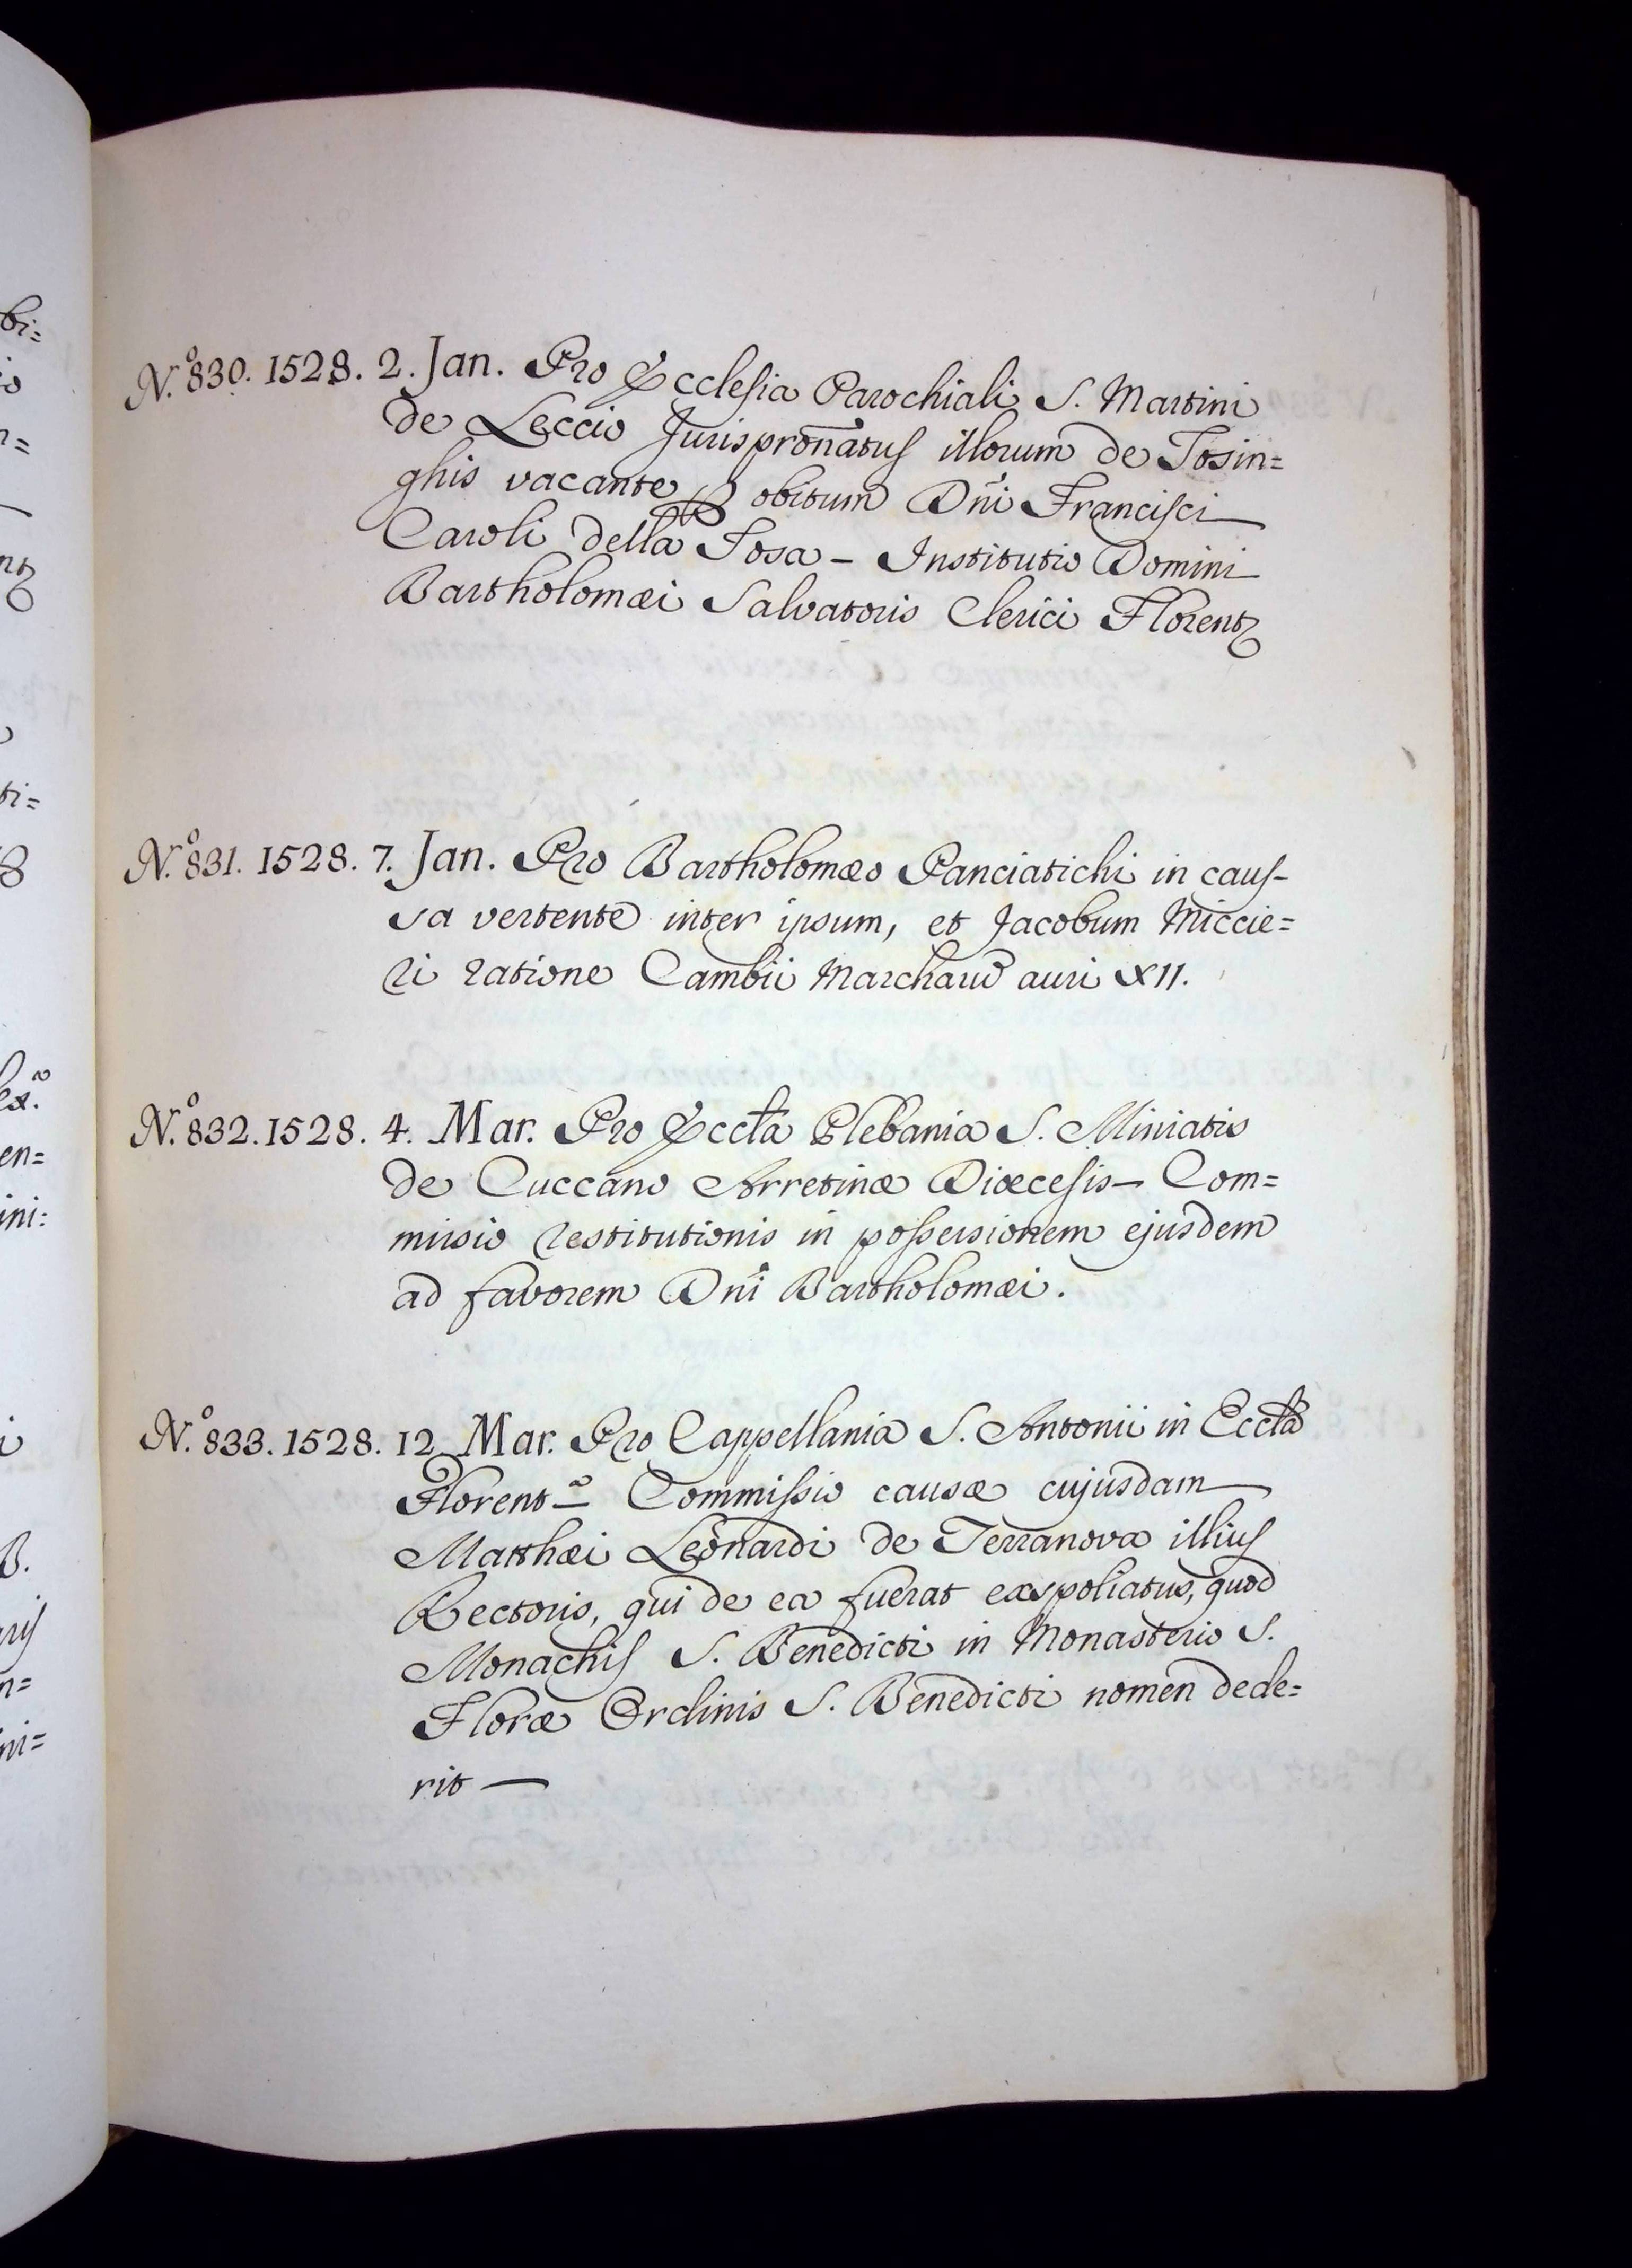 N.º 830. 1528. 2. Jan. Pro Ecclesia Parochiali S. Martini
de Leccio Jurispron̄atus illorum de Tosin=
ghis vacante ꝑ obitum Dn̄i Francisci
Caroli della Tosa – Institutio Domini
Bartholomæi Salvatoris Clerici Florentꝫ
N.º 831. 1528. 7. Jan. Pro Bartholomæo Panciatichi in caus-
sa vertente inter ipsum, et Jacobum Miccie=
ri ratione Cambii Marchaud auri XII.
N.º 832. 1528. 4. Mar. Pro Eccła Plebania S. Miniatis
de Cuccano Arretinæ Diœcesis – Com=
missio restitutionis in possessionem ejusdem
ad favorem Dn̄i Bartholomæi.
N.º 833. 1528. 12 Mar. Pro Cappellania S. Antonii in Eccła
Florent.ª Commissio causæ cujusdam
Matthæi Leonardi de Terranova illius
Rectoris, qui de ea fuerat exspoliatus, quod
Monachis S. Benedicti in Monasterio S.
Floræ Ordinis S. Benedicti nomen dede=
rit —